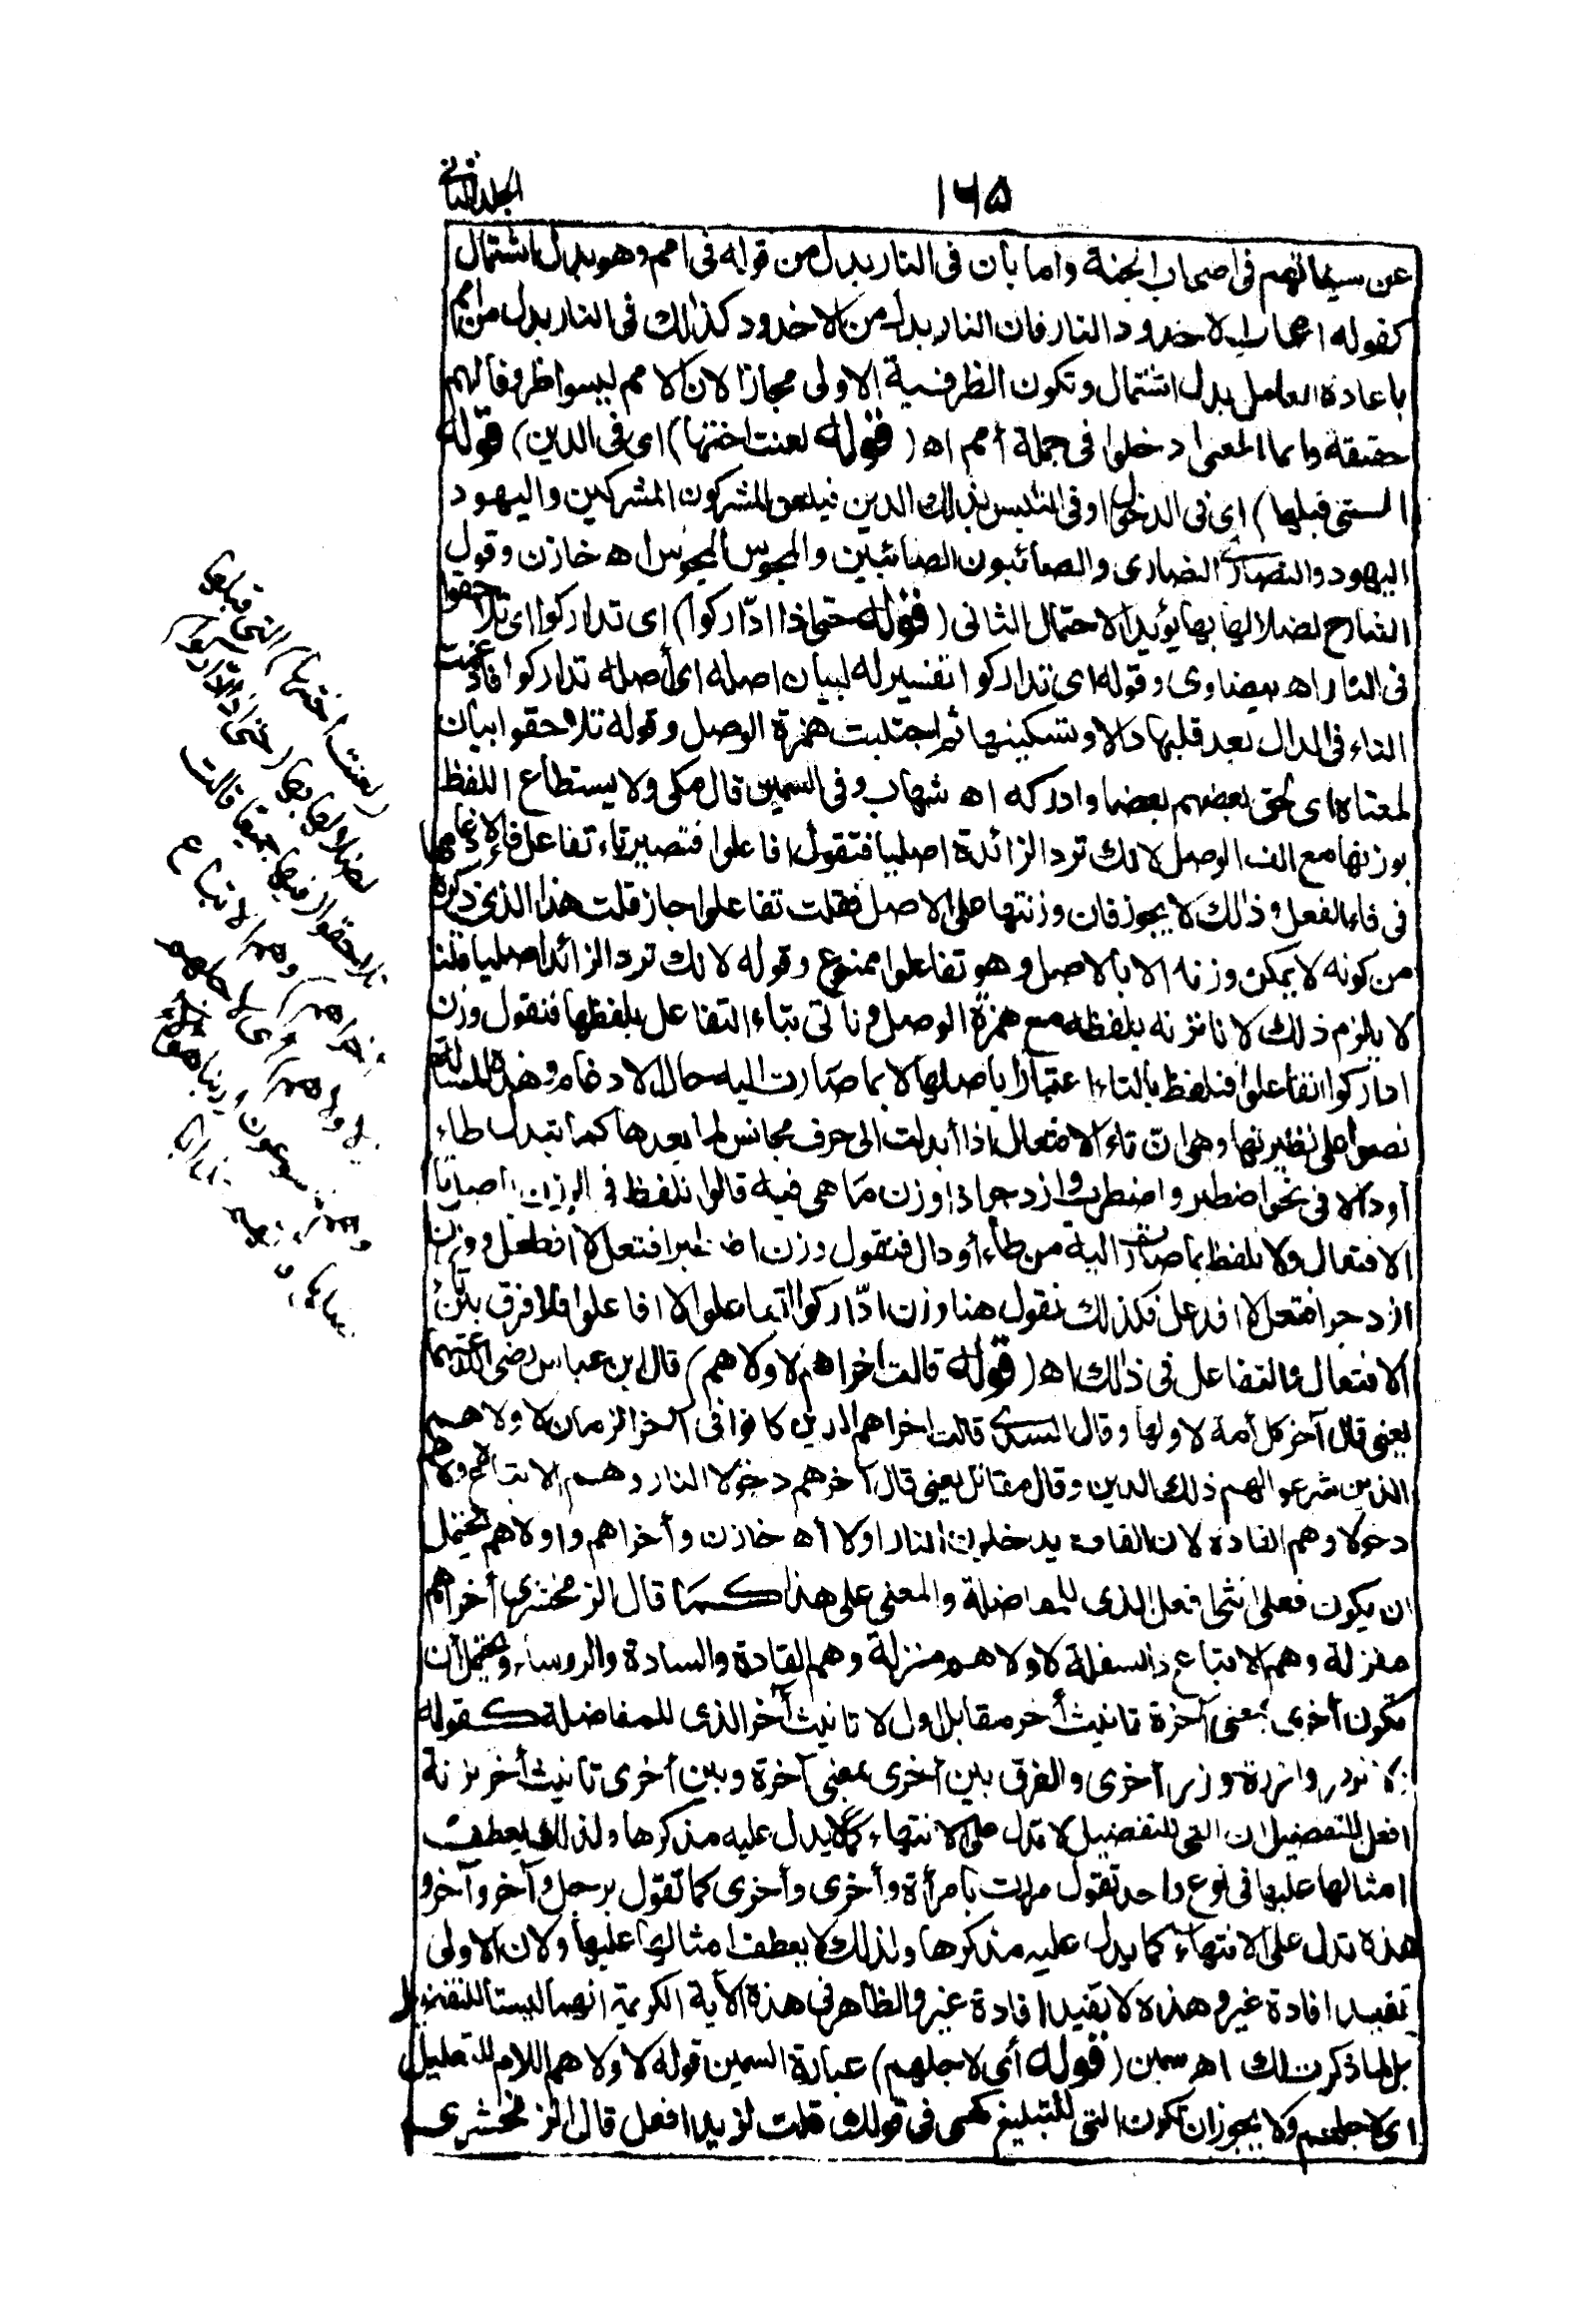 ۱۶۵
الجلد الثاني
عن سيئاتهم فى اصحاب الجنة واما بأن فى النار بدل من قوله فى امم وهو بدل اشتمال
كقوله اصحاب الاخدود النار فان النار بدل من الاخدود كذلك فى النار بدل من امم
باعادة العامل بدل اشتمال وتكون الظرفية الاولى مجازا لان الامم ليسوا ظروفا لهم
حقيقة وانما المعنى ادخلوا فى جملة أمم اه (قوله لعنت اختها) اى فى الدين) قوله
التى قبلها) اى فى الدخول او فى التلبس بذلك الدين فيلعن المشركون المشركين واليهود
اليهود والنصارى النصارى والصائبون الصائبين والمجوس المجوس اه خازن وقول
الشارح لضلالها بها يؤيد الاحتمال الثانى (قوله حتى اذا ادّاركوا) اى تداركوا اى تلاحقوا
فى النار اه بيضاوى وقوله اى تداركوا تفسير له لبيان اصله اى أصله تداركوا فادغمت
التاء فى الدال بعد قلبها دالا وتسكينها ثم اجتلبت همزة الوصل وقوله تلاحقوا بيان
لمعناه اى لحق بعضهم بعضا وادركه اه شهاب وفى السمين قال مكى ولا يستطاع اللفظ
بوزنها مع الف الوصل لانك ترد الزائدة اصليا فتقول افاعلوا فتصير تاء تفاعل فاء لادغامها
فى فاء الفعل وذلك لا يجوز فان وزنتها على الاصل فقلت تفاعلوا جاز قلت هذا الذى ذكره
من كونه لا يمكن وزنه الا بالاصل وهو تفاعلوا ممنوع وقوله لانك ترد الزائد اصليا قلنا
لا يلزم ذلك لانا نزنه بلفظه مع همزة الوصل ونأتى بتاء التفاعل بلفظها فنقول وزن
اداركوا اتفاعلوا فنلفظ بالتاء اعتبارا باصلها لا بما صارت اليه حال الادغام وهذه المسألة
نصوا على نظيرتها وهى ان تاء الافتعال اذا أبدلت الى حرف مجانس لما بعدها كما تبدل طاء
أو دالا فى نحو اضطبر واضطرب وازدجر اذا وزن ما هى فيه قالوا نلفظ فى الوزن باصل تاء
الافتعال ولا نلفظ بما صارت اليه من طاء أو دال فنقول وزن اصطبر افتعل لا افطعل ووزن
ازدجر افتعل لا افدعل فكذلك نقول هنا وزن ادّاركوا اتفاعلوا لا افاعلوا فلا فرق بين تاء
الافتعال والتفاعل فى ذلك اه (قوله قالت اخراهم لاولاهم) قال ابن عباس رضى الله عنهما
يعنى قال آخر كل أمة لاولها وقال السدى قالت اخراهم الذين كانوا فى آخر الزمان لاولاهم
الذين شرعوا لهم ذلك الدين وقال مقاتل يعنى قال آخرهم دخولا النار وهم الاتباع لاولاهم
دخولا وهم القادة لان القادة يدخلون النار اولا اه خازن وأخراهم واولاهم يحتمل
ان يكون فعلى انثى افعل الذى للمفاضلة والمعنى على هذا كما قال الزمخشرى أخراهم
منزلة وهم الاتباع والسفلة لاولاهم منزلة وهم القادة والسادة والروساء ويحتمل أن
تكون أخرى بمعنى آخرة تانيث آخر مقابل اول لا تانيث آخر الذى للمفاضلة كقوله
ولا تزر وازرة وزر أخرى والفرق بين أخرى بمعنى آخرة وبين أخرى تانيث أخر بزنة
افعل للتفضيل ان التى للتفضيل لا تدل على الانتهاء كما لا يدل عليه مذكرها ولذلك يعطف
امثالها عليها فى نوع واحد تقول مررت بامرأة وأخرى وأخرى كما تقول برجل وآخر وآخر و
هذه تدل على الانتهاء كما يدل عليه مذكرها ولذلك لا يعطف امثالها عليها ولان الاولى
تفيد افادة غير وهذه لا تفيد افادة غير والظاهر فى هذه الآية الكريمة انهما ليستا للتفضيل
بل لما ذكرت لك اه سمين (قوله أى لاجلهم) عبارة السمين قوله لاولاهم اللام للتعليل
اى لاجلهم ولا يجوز ان تكون التى للتبليغ كهى فى قولك قلت لزيد افعل قال الزمخشرى
(لعنت اختها) التى قبلها